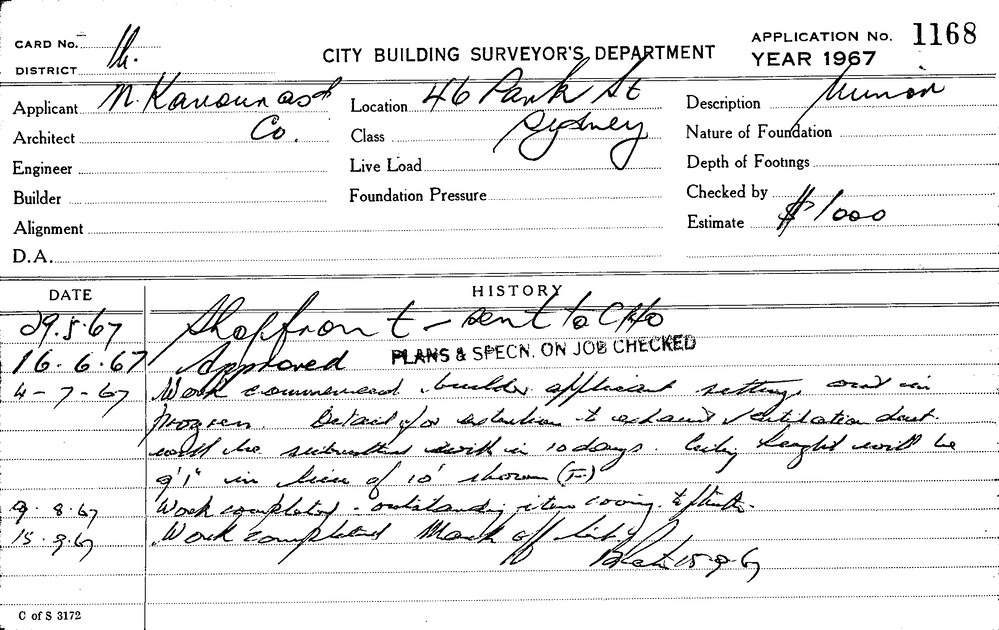 CARD No.
DISTRICT
CITY BUILDING SURVEYOR'S DEPARTMENT
APPLICATION No. 1168
YEAR 1967
Applicant M. Kavounas &
Co.
Location 46 Park St
Sydney
Description Minor
Architect
Class
Nature of Foundation
Engineer
Live Load
Depth of Footings
Builder
Foundation Pressure
Checked by
Alignment
Estimate $1000
D.A.
DATE HISTORY
29.5.67 Shopfront - sent to CHO
16.6.67 Approved PLANS & SPECN. ON JOB CHECKED
4-7-67 Work commenced builder applicant setting out in
progress. Detail for extension to exhaust ventilation duct
will be submitted within 10 days. Ceiling height will be
9'1" in lieu of 10' shown (F)
9.8.67 Work completed - outstanding item coving to
15.9.67 Work completed Mark off
15-9-67
C of S 3172